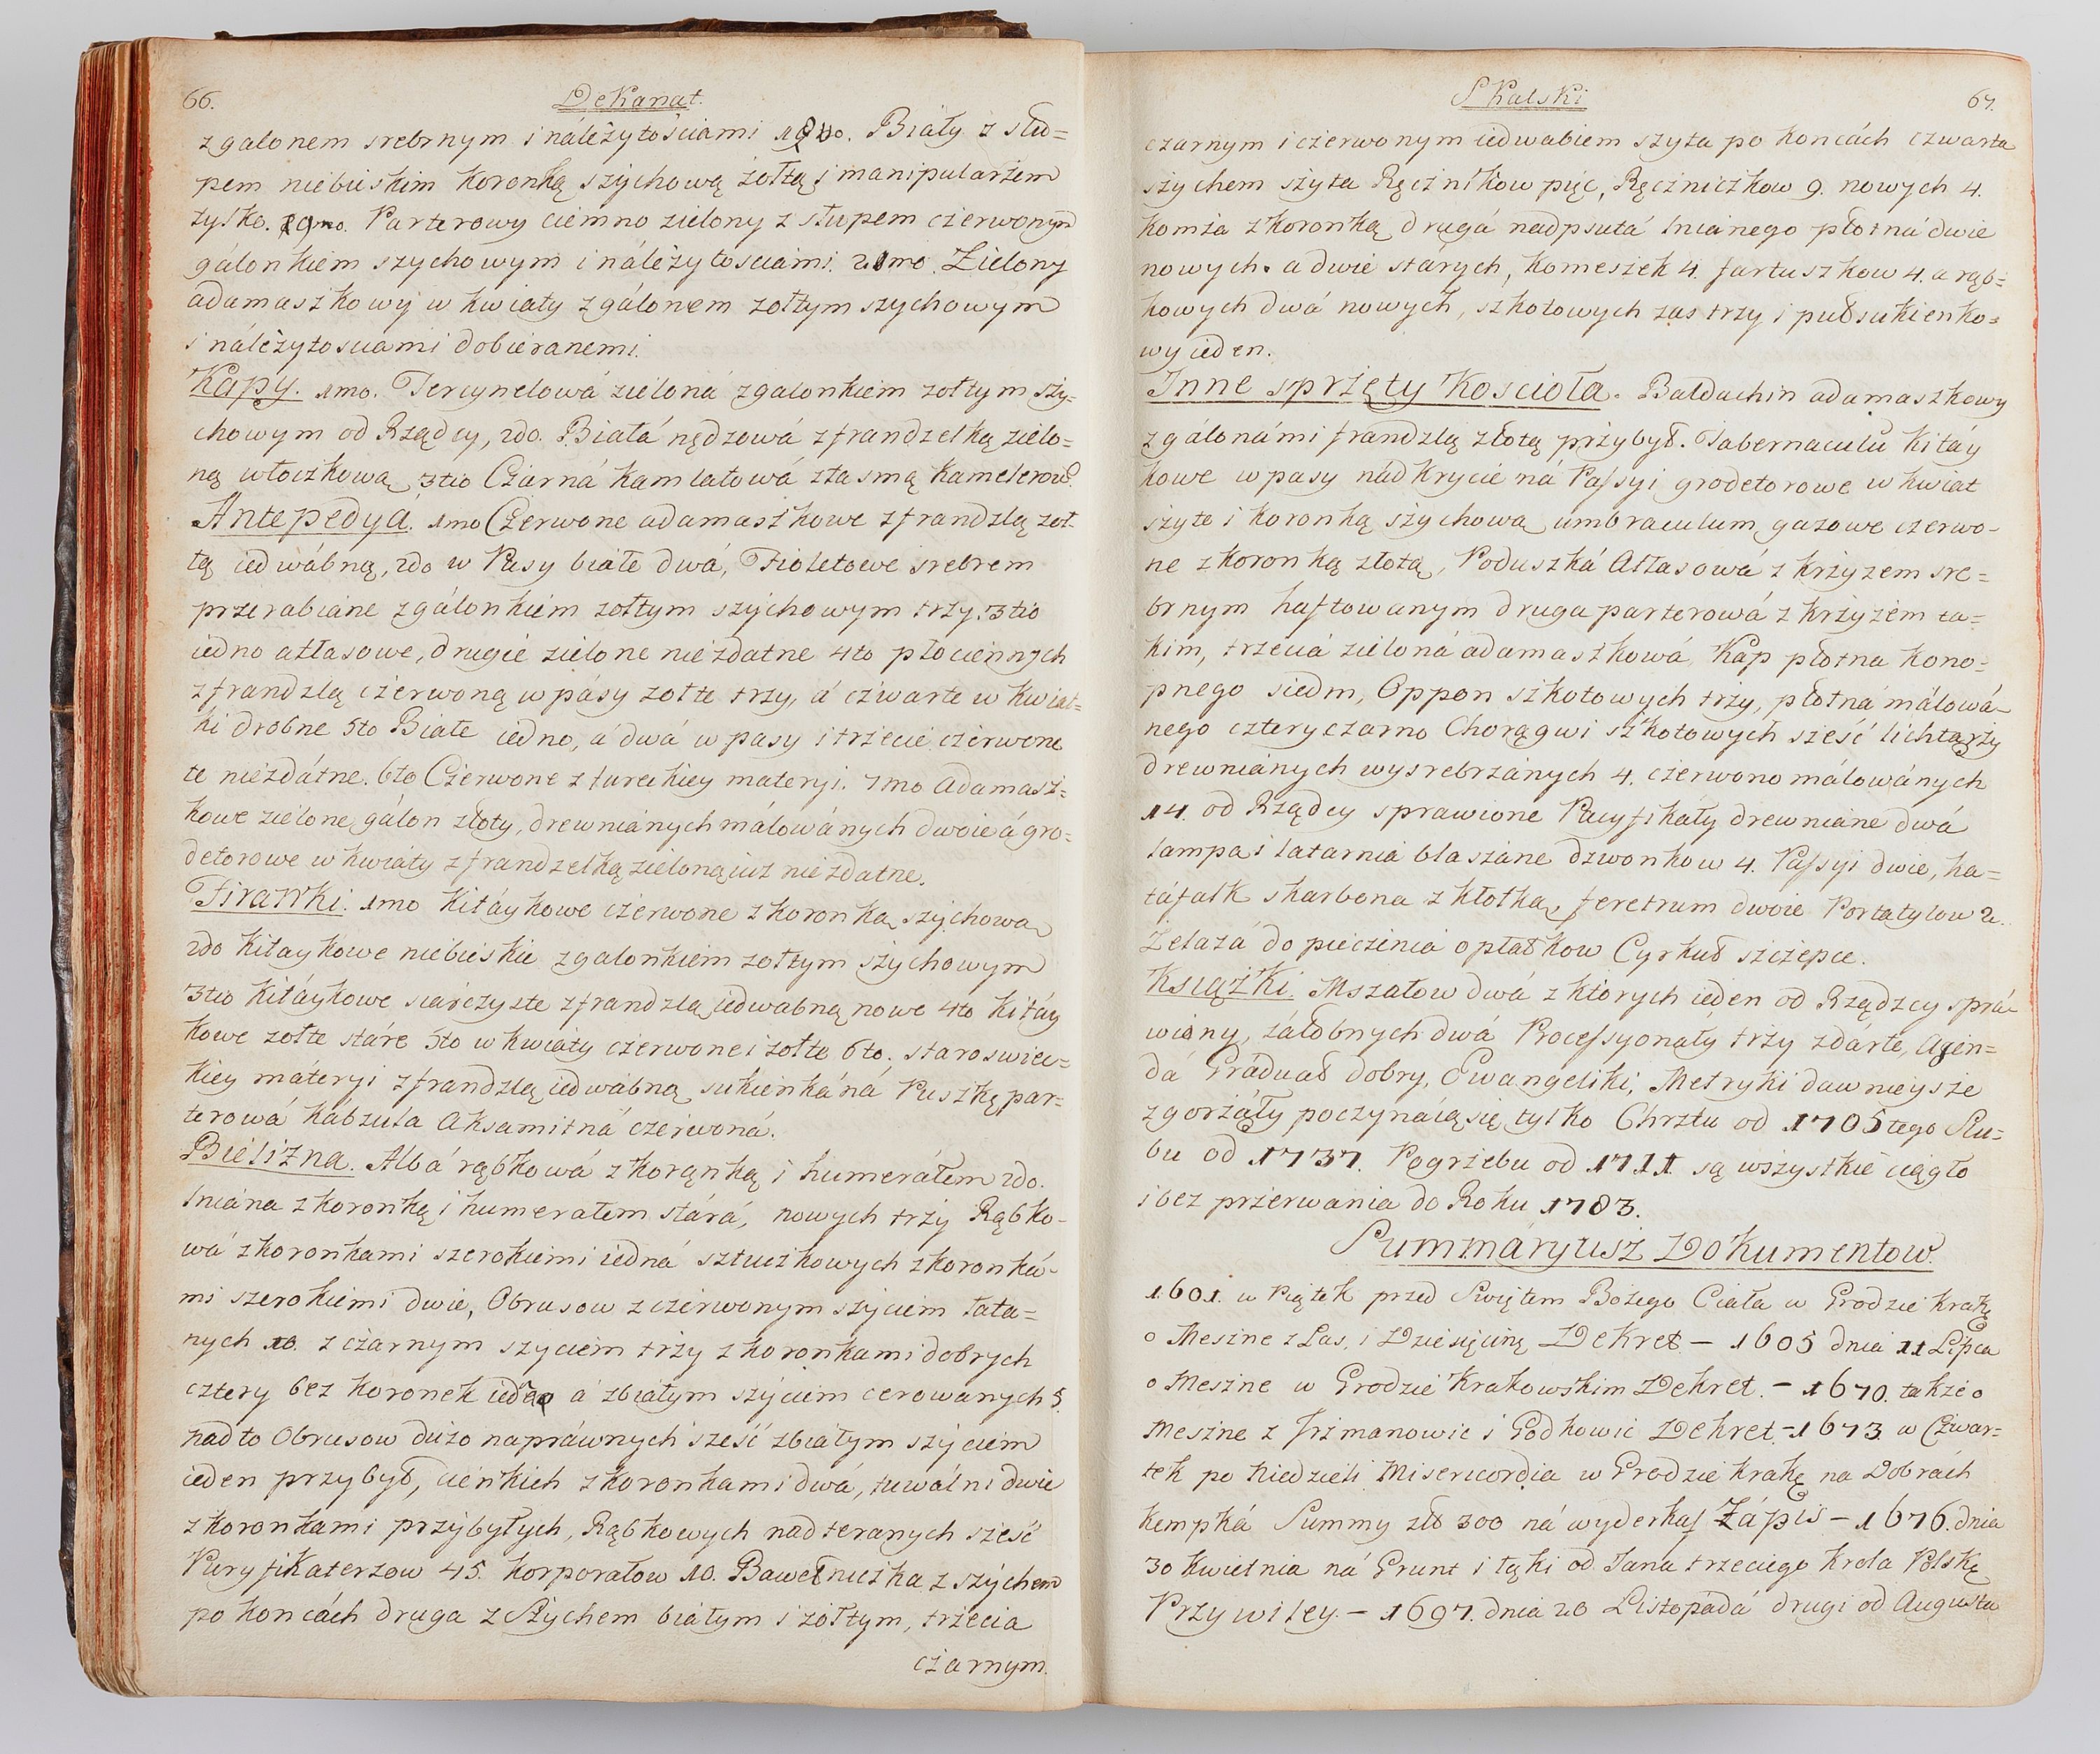 66.
Dekanat.
z galonem srebrnym i náleżytościami 18vo. Biały z słu=
pem niebieskim koronką szychową żołtą i manipularzem
tylko. 19no. Parterowy ciemno zielony z słupem czerwonym
gálonkiem szychowym i náleżytosciami. 20mo. Zielony
adamaszkowy w kwiaty z gálonem zołtym szychowym
i náleżytosciami dobieranemi.
Kapy. 1mo. Tercynelowá zieloná z galonkiem zołtym szy-
chowym od Rządcy, 2do. Białá nędzowá z frandzelką zielo=
ną włoczkową, 3tio Czarná kamlatowá z tasmą kamelerową.
Antepedya. 1mo Czerwone adamaszkowe z frandzlą zoł-
tą iedwábną, 2do w Pasy białe dwá, Fioletowe srebrem
przerabiane z gálonkiem zołtym szychowym trzy. 3tio
iedno atłasowe, drugie zielone niezdatne 4to płociennych
z frandzlą czerwoną w pásy zołte trzy, á czwarte w kwiat=
ki drobne 5to Białe iedno, á dwá w pasy i trzecie czerwone
te niezdátne. 6to Czerwone z tureckiey materyi. 7mo Adamasz=
kowe zielone gálon złoty, drewniánych málowánych dwoie á gro=
detorowe w kwiáty z frandzelką zieloną iuż niezdatne.
Firanki. 1mo Kitáykowe czerwone z koronką szychową
2do kitaykowe niebieskie z galonkiem zołtym szychowym
3tio kitáykowe siarczyste z frandzlą iedwabną nowe 4to kitáy
kowe zołte stáre 5to w kwiáty czerwone i zołte 6to. staroswiec-
kiey máteryi z frandzlą iedwábną sukienká ná Puszkę par=
terowá kábzula Aksamitná czerwoná.
Bielizna. Albá rąbkowá z koronką i humeráłem 2do.
lniána z koronką i humerałem stárá, nowych trzy Rąbko-
wá z koronkami szerokiemi iedná sztuczkowych z koronká-
mi szerokiemi dwie, Obrusow z czerwonym szyciem łata=
nych 10. z czarnym szyciem trzy z koronkami dobrych
cztery bez koronek ieden á z białym szyciem cerowanych 5.
nad to Obrusow dużo napráwnych sześć z białym szyciem
ieden przybył, cienkich z koronkami dwá, tuwálni dwie
z koronkami przybyłych, Rąbkowych nadteranych sześć
Puryfikaterzow 45. korporałow 10. Bawełniczka z szychem
po koncách druga z Szychem białym i zołtym, trzecia
czarnym.
Skalski
67.
czarnym i czerwonym iedwabiem szyta po koncách czwarta
szychem szyta Ręcznikow pięc, Ręczniczkow 9. nowych 4.
komża z koronką drugá nadpsutá lnianego płotná dwie
nowych. a dwie starych, komeszek 4. fartuszkow 4. a rąb=
kowych dwá nowych, szkotowych zas trzy i pułsukienko=
wy ieden.
Inne sprzęty Koscioła. Baldachin adamaszkowy
z gálonámi frandzlą złotą przybył. Tabernaculũ kitáy
kowe w pasy nádkrycie ná Passyi grodetorowe w kwiat
szyte i koronką szychową umbraculum gazowe czerwo-
ne z koronką złotą, Poduszká Atłasowá z krzyzem sre=
brnym haftowanym druga parterowá z krzyżem ta=
kim, trzeciá zieloná adamaszkowá, Kap płotna kono=
pnego siedm, Oppon szkotowych trzy, płotná málowá-
nego cztery czarno Chorągwi szkotowych sześć lichtarzy
drewniánych wysrebrzánych 4. czerwono málowánych
14. od Rządcy sprawione Pacyfikáły drewniane dwá
lampa i latarnia blaszáne dzwonkow 4. Passyi dwie, ka=
táfalk skarbona z kłotką, feretrum dwoie Portatylow 2.
Zelazá do pieczenia opłatkow Cyrkuł szczepce.
Książki. Mszałow dwá z ktorych ieden od Rządzcy sprá-
wiony, záłobnych dwá Processyonały trzy zdárte, Agen=
dá Gráduał dobry, Ewangeliki, Metryki dawnieysze
zgorzáły poczynáią się tylko Chrztu od 1705tego Slu=
bu od 1737. Pogrzebu od 1711 są wszystkie ciągło
i bez przerwania do Roku 1783.
Summáryusz Dokumentow.
1601. w Piątek przed Swiętem Bożego Ciała w Grodzie Krakę
o Meszne z Las. i Dziesięcinę Dekret – 1605 dnia 11 Lipca
o Meszne w Grodzie Krakowskim Dekret. – 1670. także o
Meszne z Jrzmanowic i Godkowic Dekret. – 1673. w Czwar=
tek po Niedzieli Misericordia w Grodzie Krakę na Dobrách
Kempká Summy zło 300 ná wyderkaf Zápis – 1676. dnia
30 Kwietnia ná Grunt i łąki od Jana trzeciego Krola Polskę
Przywiley. – 1697. dnia 20 Listopádá drugi od Augusta